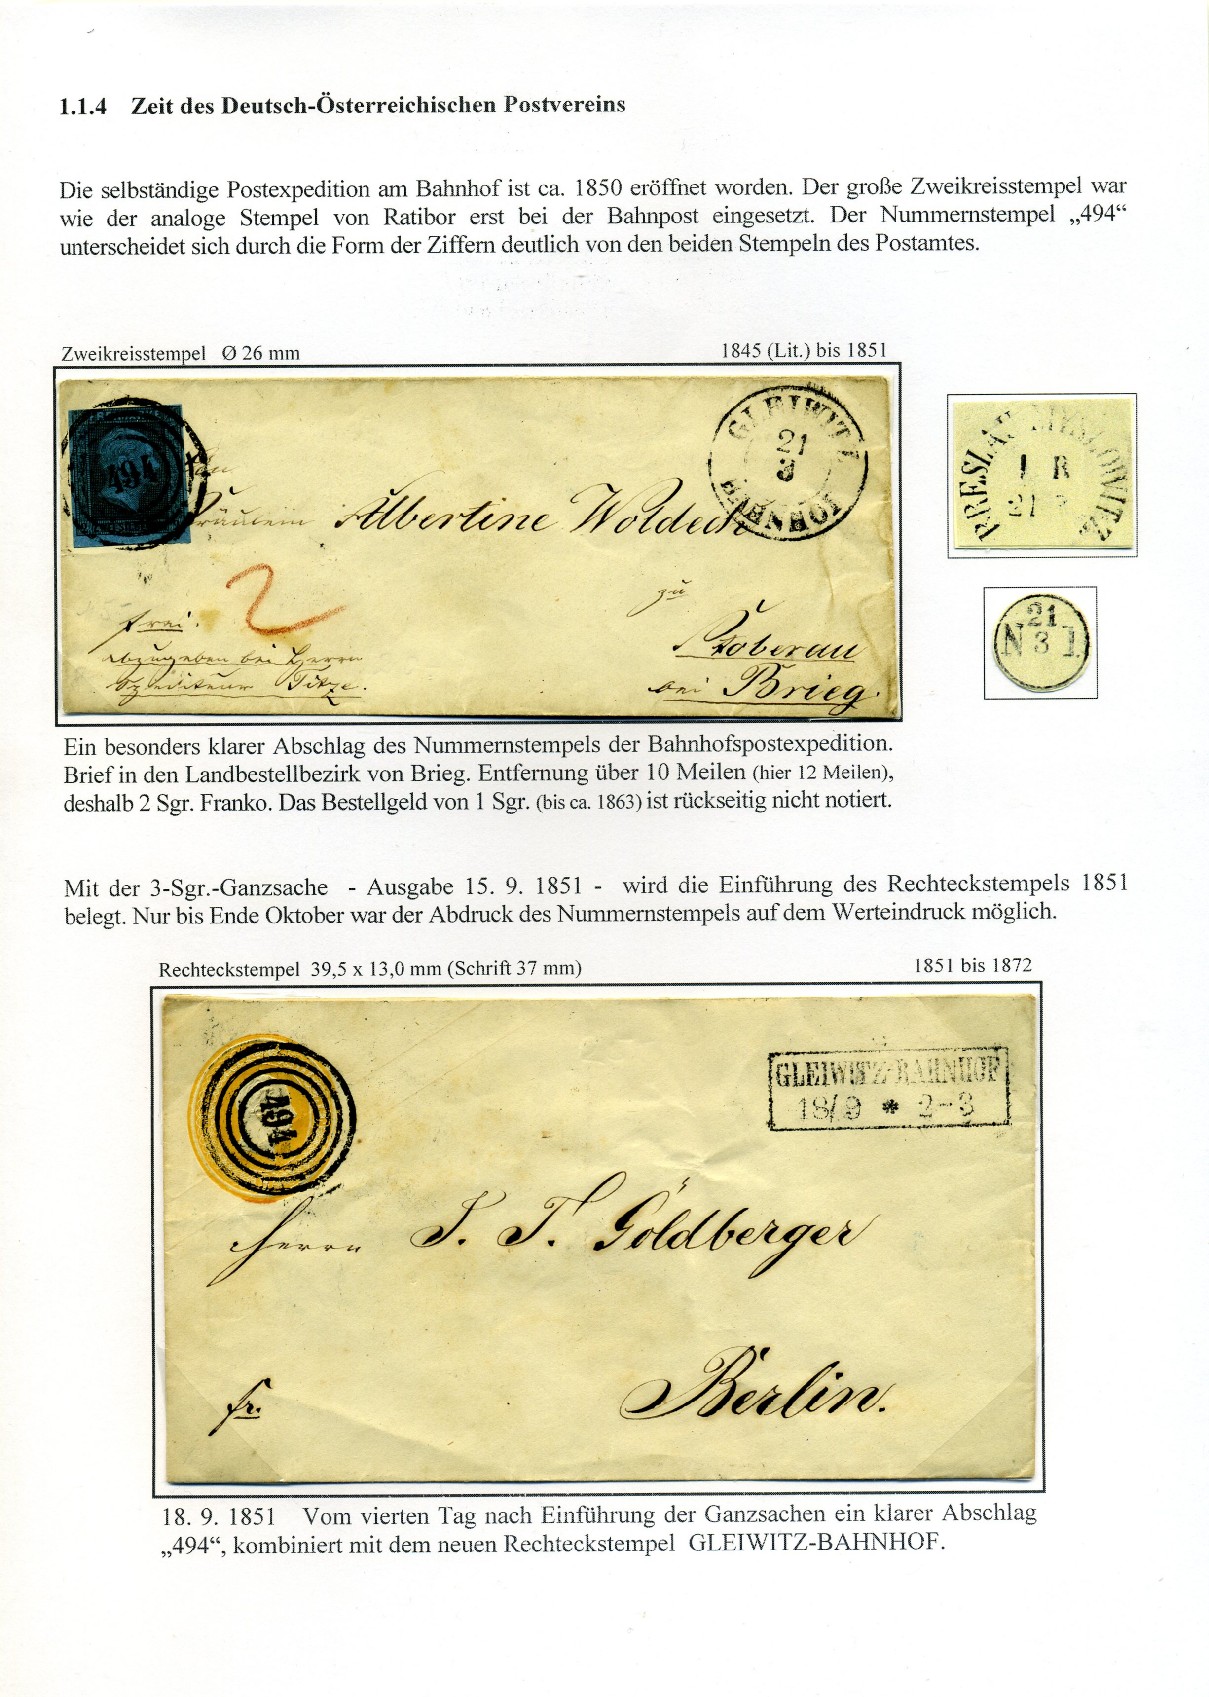 1.1.4 Zeit des Deutsch-Österreichischen Postvereins
Die selbständige Postexpedition am Bahnhof ist ca. 1850 eröffnet worden. Der große Zweikreisstempel war
wie der analoge Stempel von Ratibor erst bei der Bahnpost eingesetzt. Der Nummernstempel „494“
unterscheidet sich durch die Form der Ziffern deutlich von den beiden Stempeln des Postamtes.
Zweikreisstempel Ø 26 mm
1845 (Lit.) bis 1851
494
GLEIWITZ
21
3
BAHNHOF
Fräulein Albertine Woldeck
2
zu
frei.
abzugeben bei Herrn
Spediteur Titze.
bei Brieg.
BRESLAU MYSLOWITZ
1 R
21
21
N 3 I.
Ein besonders klarer Abschlag des Nummernstempels der Bahnhofspostexpedition.
Brief in den Landbestellbezirk von Brieg. Entfernung über 10 Meilen (hier 12 Meilen),
deshalb 2 Sgr. Franko. Das Bestellgeld von 1 Sgr. (bis ca. 1863) ist rückseitig nicht notiert.
Mit der 3-Sgr.-Ganzsache - Ausgabe 15. 9. 1851 - wird die Einführung des Rechteckstempels 1851
belegt. Nur bis Ende Oktober war der Abdruck des Nummernstempels auf dem Werteindruck möglich.
Rechteckstempel 39,5 x 13,0 mm (Schrift 37 mm)
1851 bis 1872
494
GLEIWITZ-BAHNHOF
18/9 * 2-3
Herrn J. T. Goldberger
Berlin.
fr.
18. 9. 1851 Vom vierten Tag nach Einführung der Ganzsachen ein klarer Abschlag
„494“, kombiniert mit dem neuen Rechteckstempel GLEIWITZ-BAHNHOF.